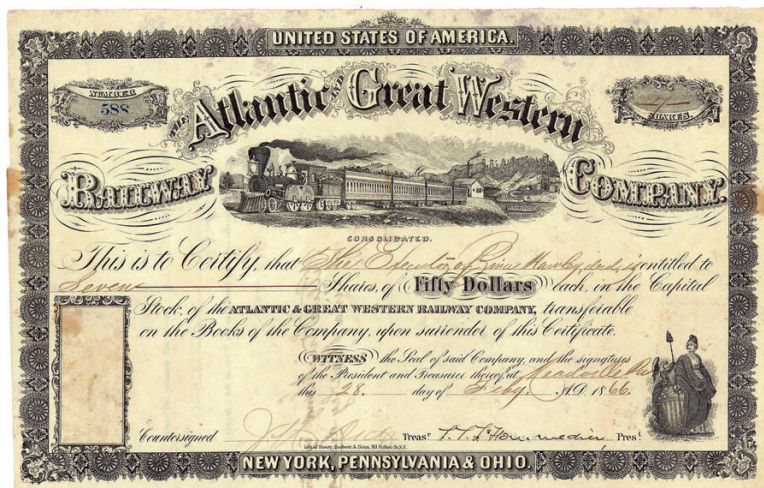 UNITED STATES OF AMERICA.
NUMBER
588
7
SHARES.
THE Atlantic AND Great Western
RAILWAY COMPANY.
CONSOLIDATED.
This is to Certify, that The Executors of Rinus Hawley, decd, is entitled to
Seven Shares, of Fifty Dollars each, in the Capital
Stock, of the ATLANTIC & GREAT WESTERN RAILWAY COMPANY, transferable
on the Books of the Company, upon surrender of this Certificate.
WITNESS the Seal of said Company, and the signatures
of the President and Treasurer thereof at Meadville Pa
this 28. day of Feby. A.D. 1866.
Countersigned Treasr. Prest.
NEW YORK, PENNSYLVANIA & OHIO.